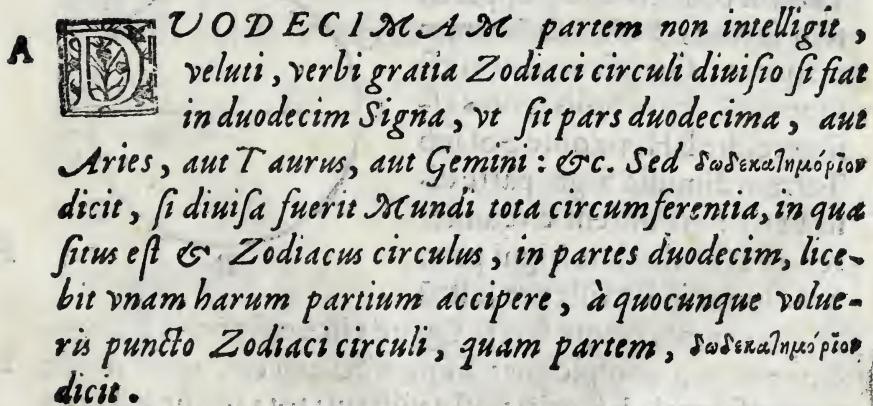 A DVODECIMAM partem non intelligit,
veluti, verbi gratia Zodiaci circuli diuiſio ſi fiat
in duodecim Signa, vt ſit pars duodecima, aut
Aries, aut Taurus, aut Gemini: &c. Sed δωδεκατημόριον
dicit, ſi diuiſa fuerit Mundi tota circumferentia, in qua
ſitus eſt & Zodiacus circulus, in partes duodecim, lice-
bit vnam harum partium accipere, à quocunque volue-
ris puncto Zodiaci circuli, quam partem, δωδεκατημόριον
dicit.